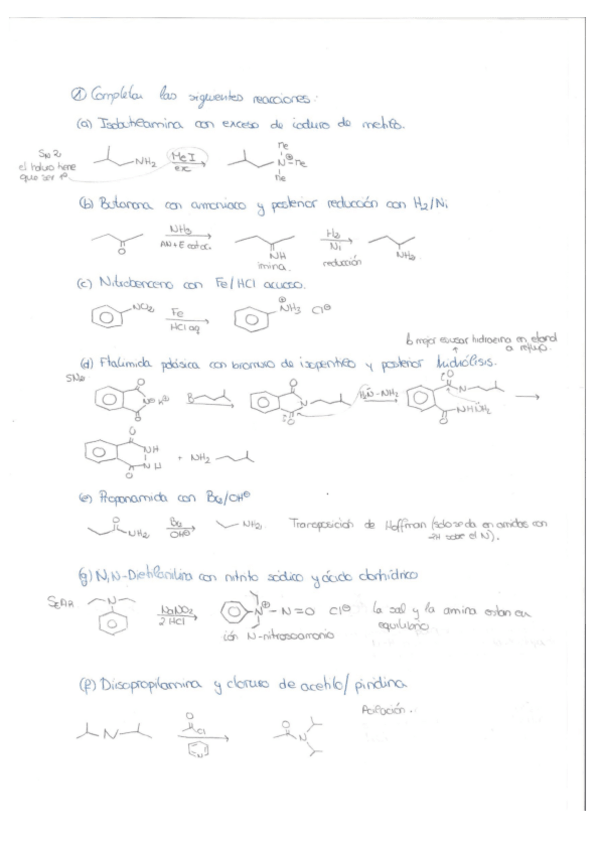 ① Completar las siguientes reacciones:
(a) Isobutilamina con exceso de ioduro de metilo.
SN2
el haluro tiene
que ser 1º
NH₂
MeI
exc
Me
N⊕-Me
Me
(b) Butanona con amoniaco y posterior reducción con H₂/Ni
O
NH₃
AN+E catac.
NH
imina.
H₂
Ni
reducción
NH₂
(c) Nitrobenceno con Fe/HCl acuoso.
NO₂
Fe
HCl aq
⊕NH₃ Cl⊖
lo mejor es usar hidracina en etanol
a reflujo.
(d) Ftalimida potásica con bromuro de isopentilo y posterior hidrólisis.
O
N⊖ K⊕
O
Br
O
N
O
H₂N-NH₂
O
N
NHNH₂
O
O
NH
NH
O
+ NH₂
(e) Propanamida con Br₂/OH⊖
O
NH₂
Br₂
OH⊖
NH₂.
Transposición de Hoffman (solo se da en amidas con
-2H sobre el N).
(g) N,N-Dietilanilina con nitrito sódico y ácido clorhídrico
SEAr
N
NaNO₂
2 HCl
N⊕-N=O Cl⊖
ión N-nitrosoamonio
La sal y la amina están en
equilibrio
(f) Diisopropilamina y cloruro de acetilo/piridina
Acilación.
N
O
Cl
N
O
N